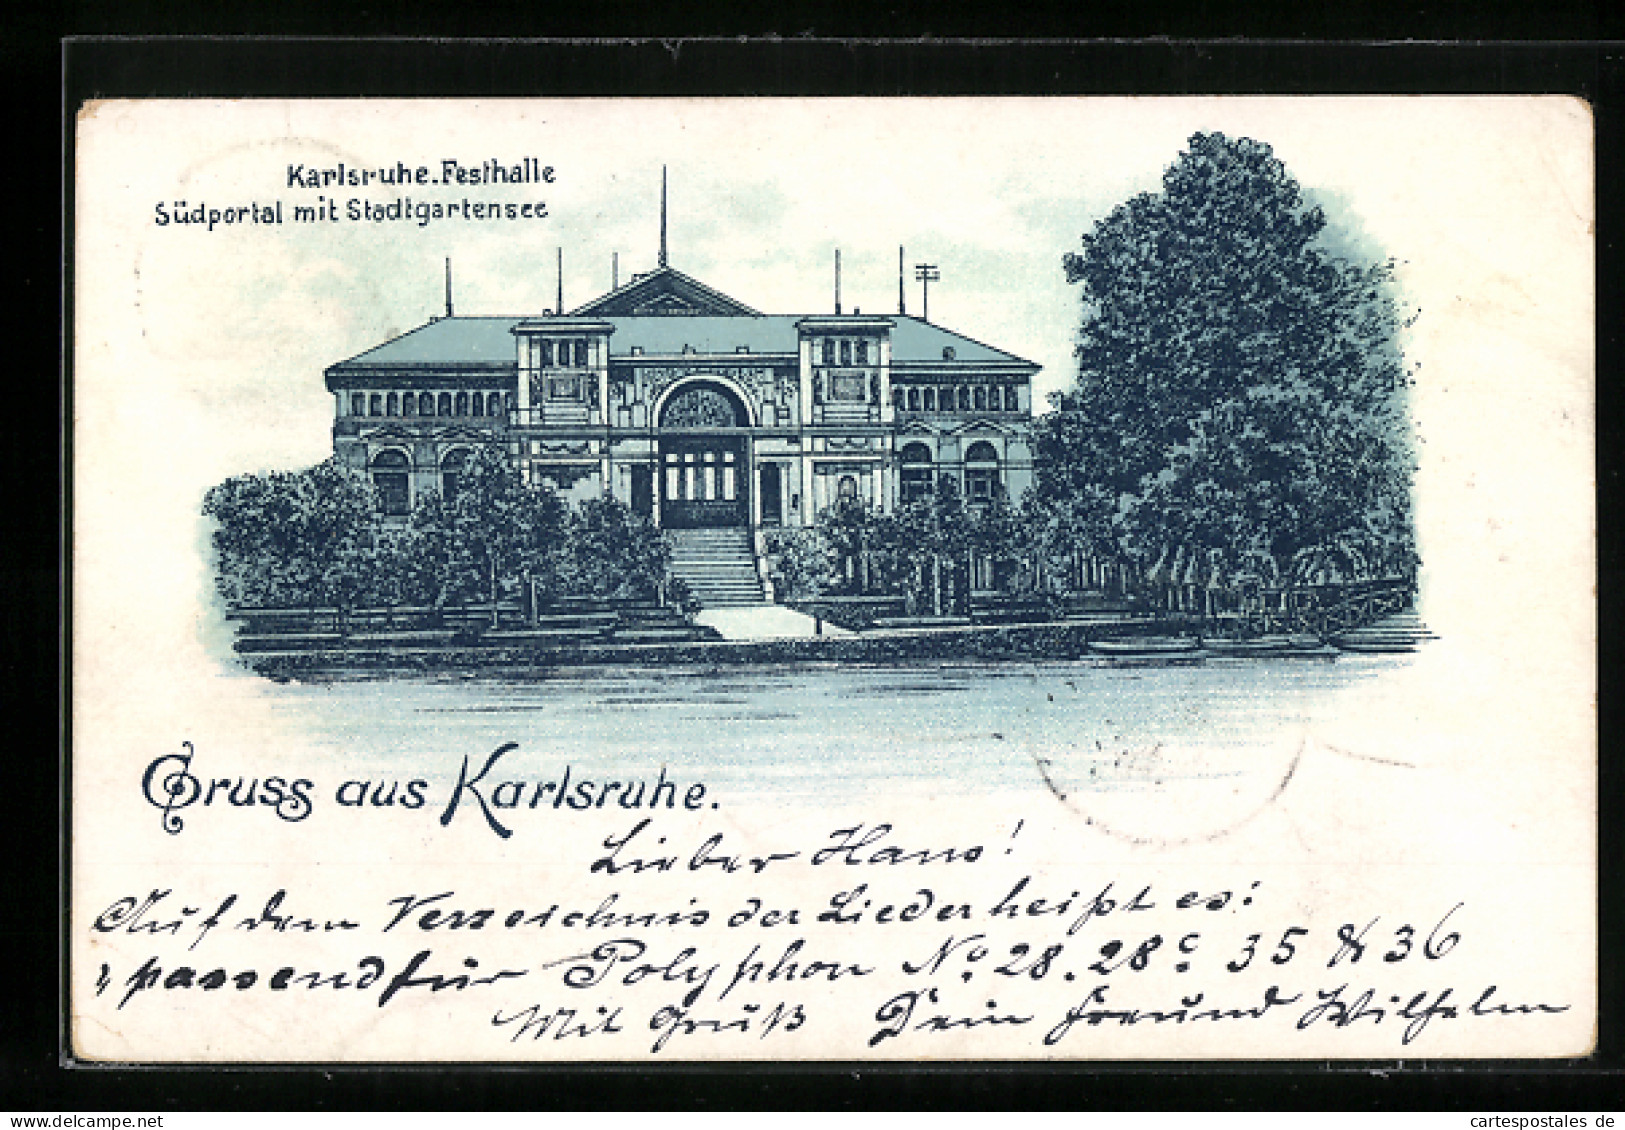 Karlsruhe. Festhalle
Südportal mit Stadtgartensee
Gruss aus Karlsruhe.
Lieber Hans!
Auf dem Verzeichnis der Lieder heißt es:
„passend für Polyphon No. 28. 28c 35 & 36
Mit Gruß Dein Freund Wilhelm
cartespostales de